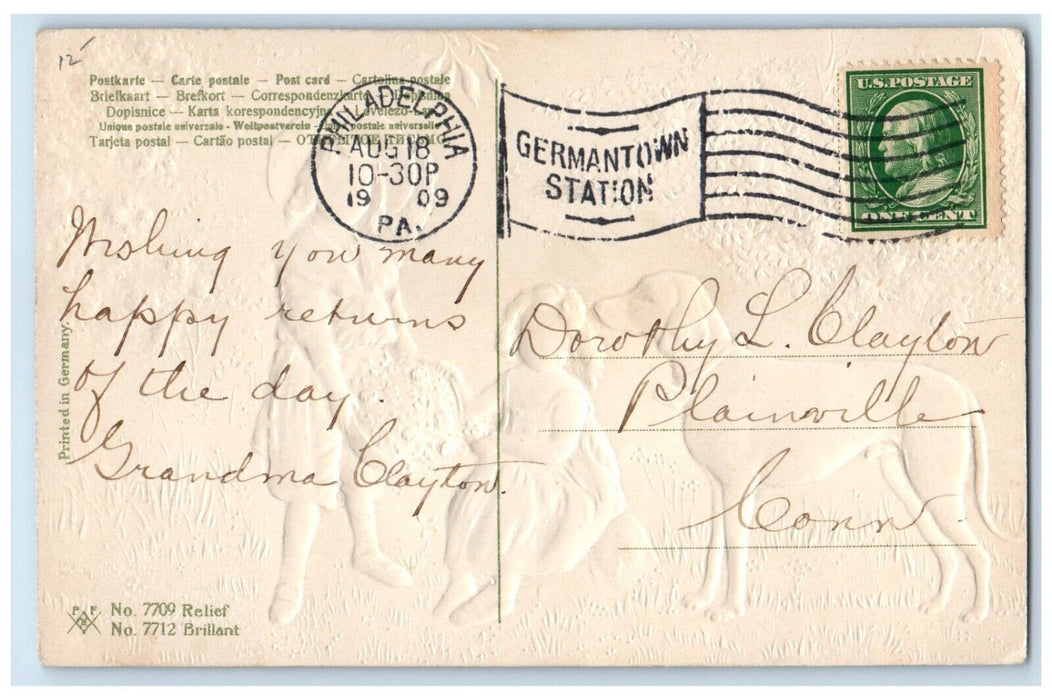 12
Postkarte — Carte postale — Post card — Cartolina postale
Briefkaart — Brefkort — Correspondenzkarte — Dopisnica
Dopisnice — Karta korespondencyjna
Unione postale universale - Weltpostverein - postale universelle
Tarjeta postal — Cartão postal —
PHILADELPHIA
AUG 18
10-30P
19 09
PA.
GERMANTOWN
STATION
U.S. POSTAGE
ONE CENT
Wishing you many
happy returns
of the day.
Grandma Clayton.
Dorothy L. Clayton
Plainville
Conn.
Printed in Germany.
P F B
No. 7709 Relief
No. 7712 Brillant